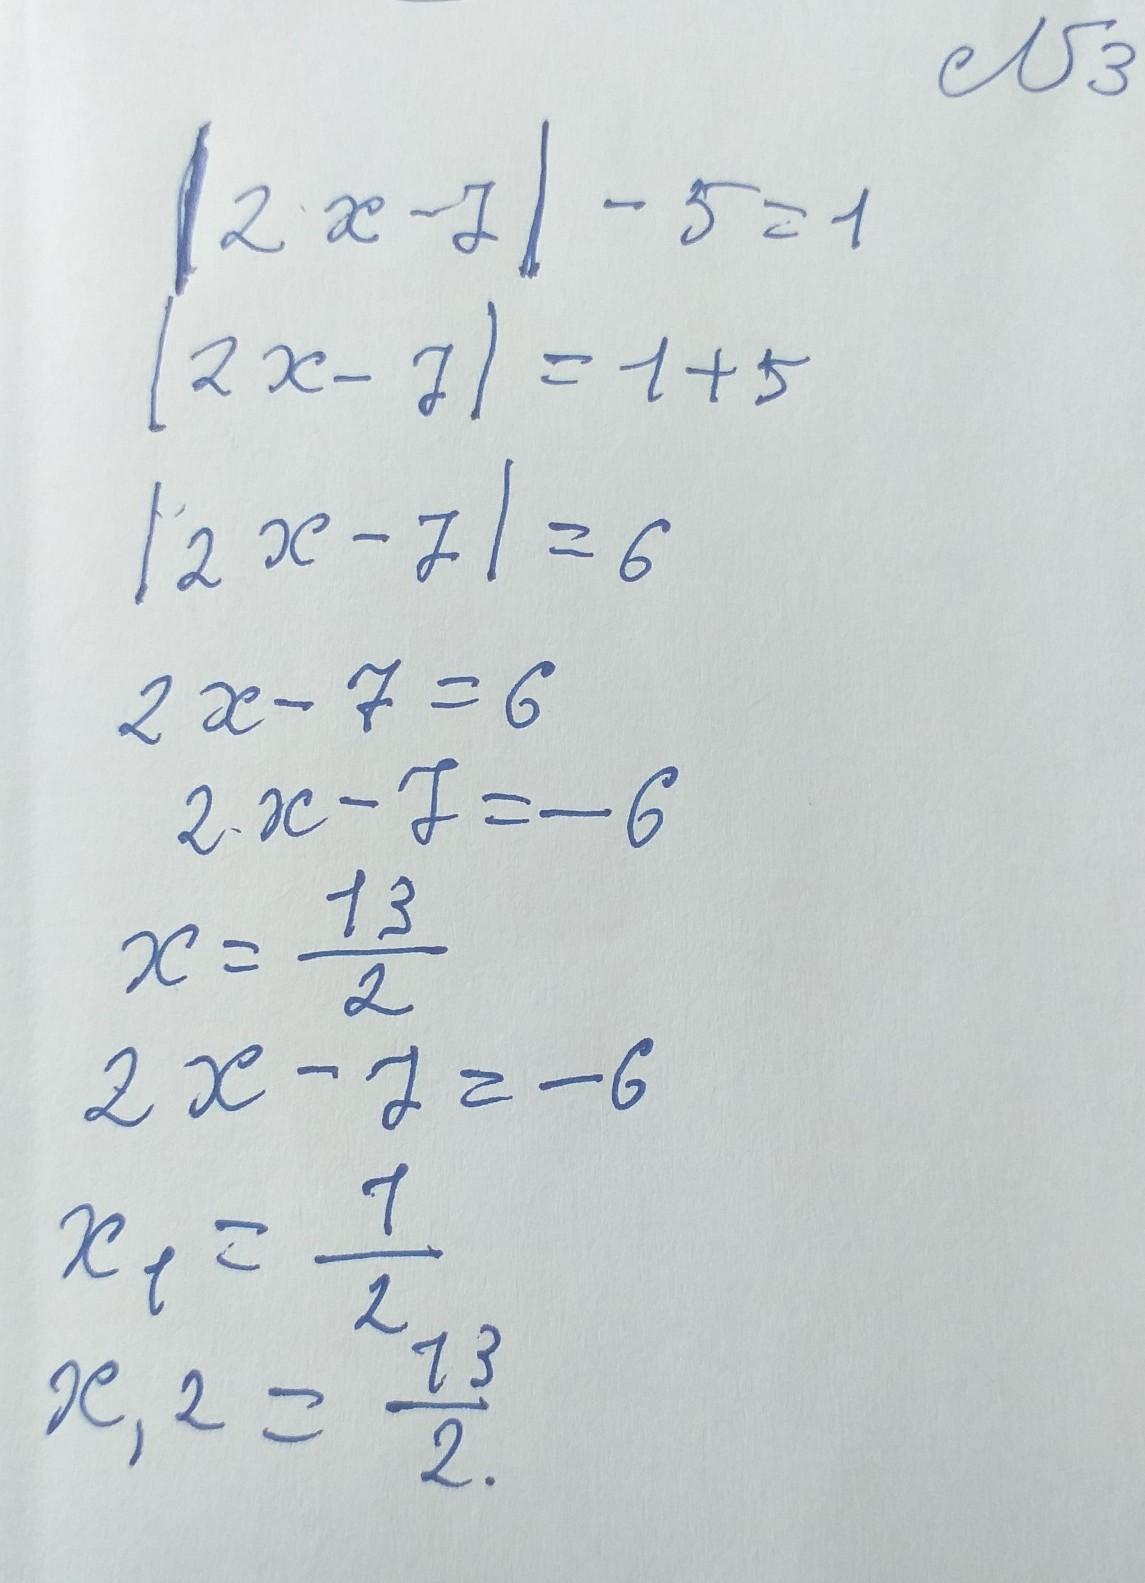 №3
|2x-7| - 5 = 1
|2x-7| = 1+5
|2x-7| = 6
2x-7 = 6
2x-7 = -6
x = 13/2
2x-7 = -6
x₁ = 1/2
x,2 = 13/2.